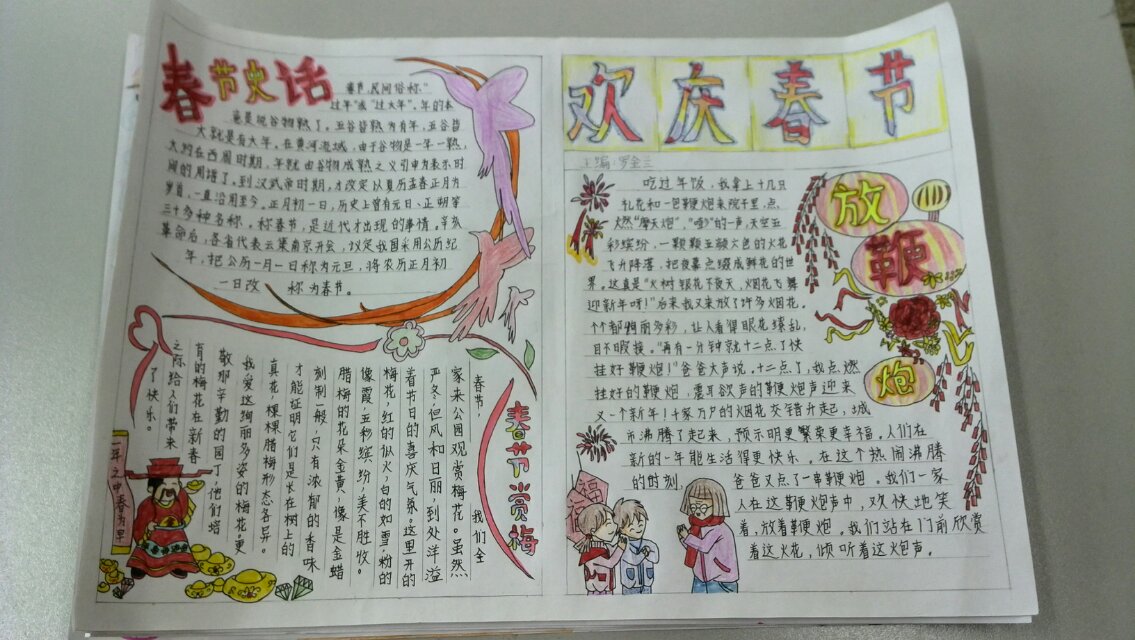 春节史话
春节,民间俗称"
过年"或"过大年"。年的本
意是说谷物熟了。五谷皆熟为有年,五谷皆
大熟是有大年。在黄河流域,由于谷物是一年一熟,
大约在西周时期,年就由谷物成熟之义引申为表示时
间的周增了。到汉武帝时期,才改定以夏历孟春正月为
岁首,一直沿用至今。正月初一日,历史上曾有元日、正朔等
三十多种名称。称春节,是近代才出现的事情。辛亥
革命后,各省代表云集南京开会,议定我国采用公历纪
年,把公历一月一日称为元旦,将农历正月初
一日改 称为春节。
春节赏梅
春节, 我们全
家来公园观赏梅花。虽然
严冬,但风和日丽,到处洋溢
着节日的喜庆气氛。这里开的
梅花,红的似火,白的如雪,粉的
像霞,五彩缤纷,美不胜收。
腊梅的花朵金黄,像是金蜡
刻制一般,只有浓郁的香味
才能证明它们是长在树上的
真花,棵棵腊梅形态各异。
我爱这绚丽多姿的梅花。更
敬那辛勤的园丁,他们培
育的梅花在新春
之际给人们带来
了快乐。
一年之中春为早
欢庆春节
主编:罗金兰
放鞭炮
吃过年饭,我拿上十几只
礼花和一包鞭炮来院子里,点
燃"摩天炮","嗵"的一声,天空五
彩缤纷,一颗颗五颜六色的火花
飞升降落,把夜幕点缀成鲜花的世
界。这真是"火树银花不夜天,烟花飞舞
迎新年呀!"后来我又来放了许多烟花。
个个都绚丽多彩,让人看得眼花缭乱,
目不暇接。"再有一分钟就十二点了快
挂好鞭炮!"爸爸大声说。十二点了,我点燃
挂好的鞭炮,震耳欲声的鞭炮声迎来
又一个新年!千家万户的烟花交错升起,城
市沸腾了起来,预示明更繁荣更幸福。人们在
新的一年能生活得更快乐。在这个热闹沸腾
的时刻,爸爸又点了一串鞭炮。我们一家
人在这鞭炮声中,欢快地笑
着,放着鞭炮。我们站在门前欣赏
着这火花,倾听着这炮声。
福